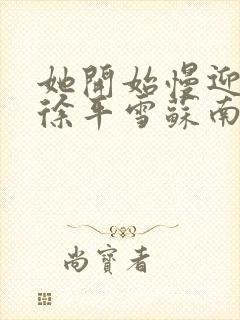 她開始慢迎
徐平雪蘇南
尚寶者